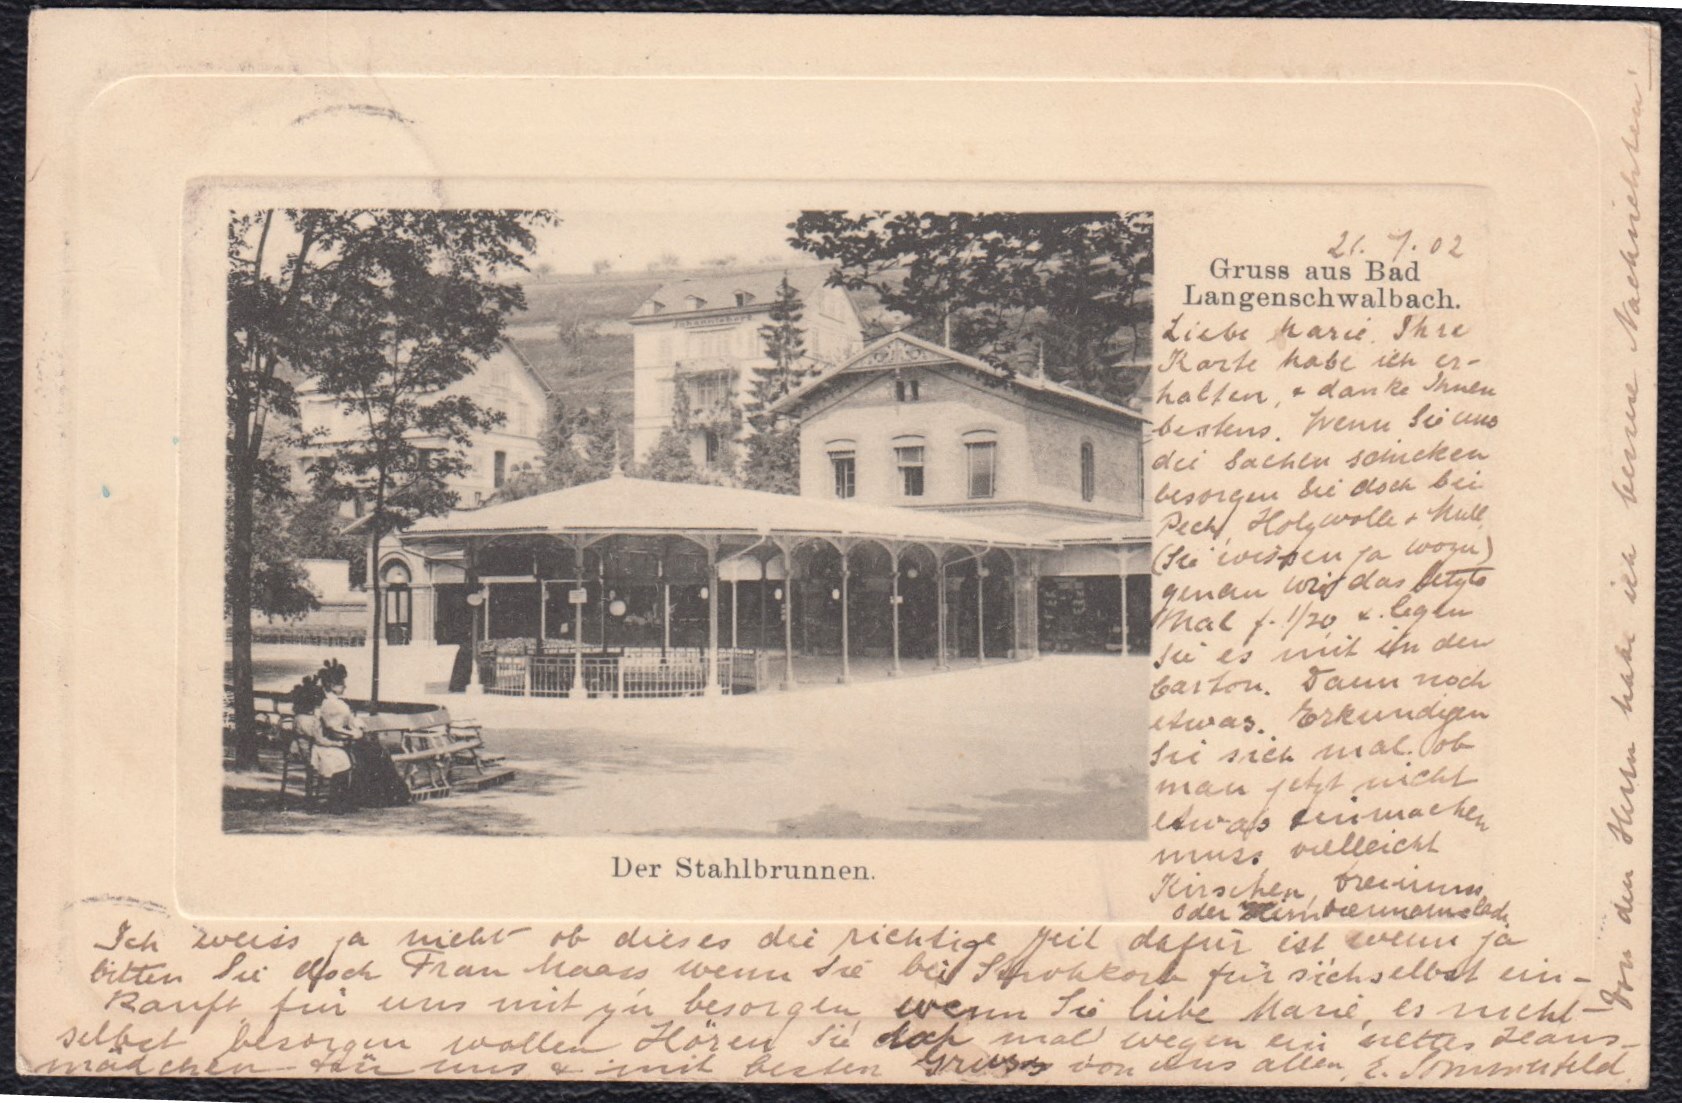 21. 7. 02
Gruss aus Bad
Langenschwalbach.
Johannisberg
Liebe Marie. Ihre
Karte habe ich er-
halten, + danke Ihnen
bestens. Wenn Sie uns
die Sachen schicken
besorgen Sie doch bei
Pech, Holzwolle + Mull
(Sie wissen ja wozu)
genau wie das letzte
Mal f. 1/20 + legen
Sie es mit in den
Carton. Dann noch
etwas. Erkundigen
Sie sich mal ob
man jetzt nicht
etwas einmachen
muss vielleicht
Kirschen,
oder
Der Stahlbrunnen.
Ich weiss ja nicht ob dieses die richtige Zeit dafür ist wenn ja
bitten Sie doch Frau Maass wenn Sie bei für sich selbst ein-
kauft für uns mit zu besorgen wenn Sie liebe Marie, es nicht
selbst besorgen wollen Hören Sie doch mal wegen ein nettes Haus-
mädchen für uns + mit besten Gruss von uns allen, E. Sommerfeld.
Von den Herren habe ich Nachrichten!